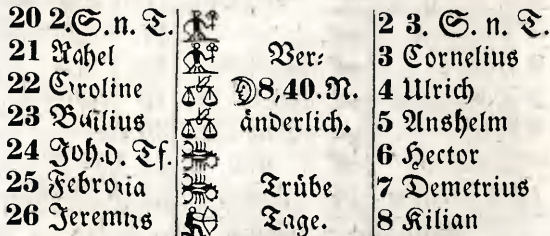 20 2. S. n. T. 2 3. S. n. T.
21 Rahel Ver: 3 Cornelius
22 Caroline 8,40. N. 4 Ulrich
23 Basilius änderlich. 5 Anshelm
24 Joh. d. Tf. 6 Hector
25 Febronia Trübe 7 Demetrius
26 Jeremias Tage. 8 Kilian